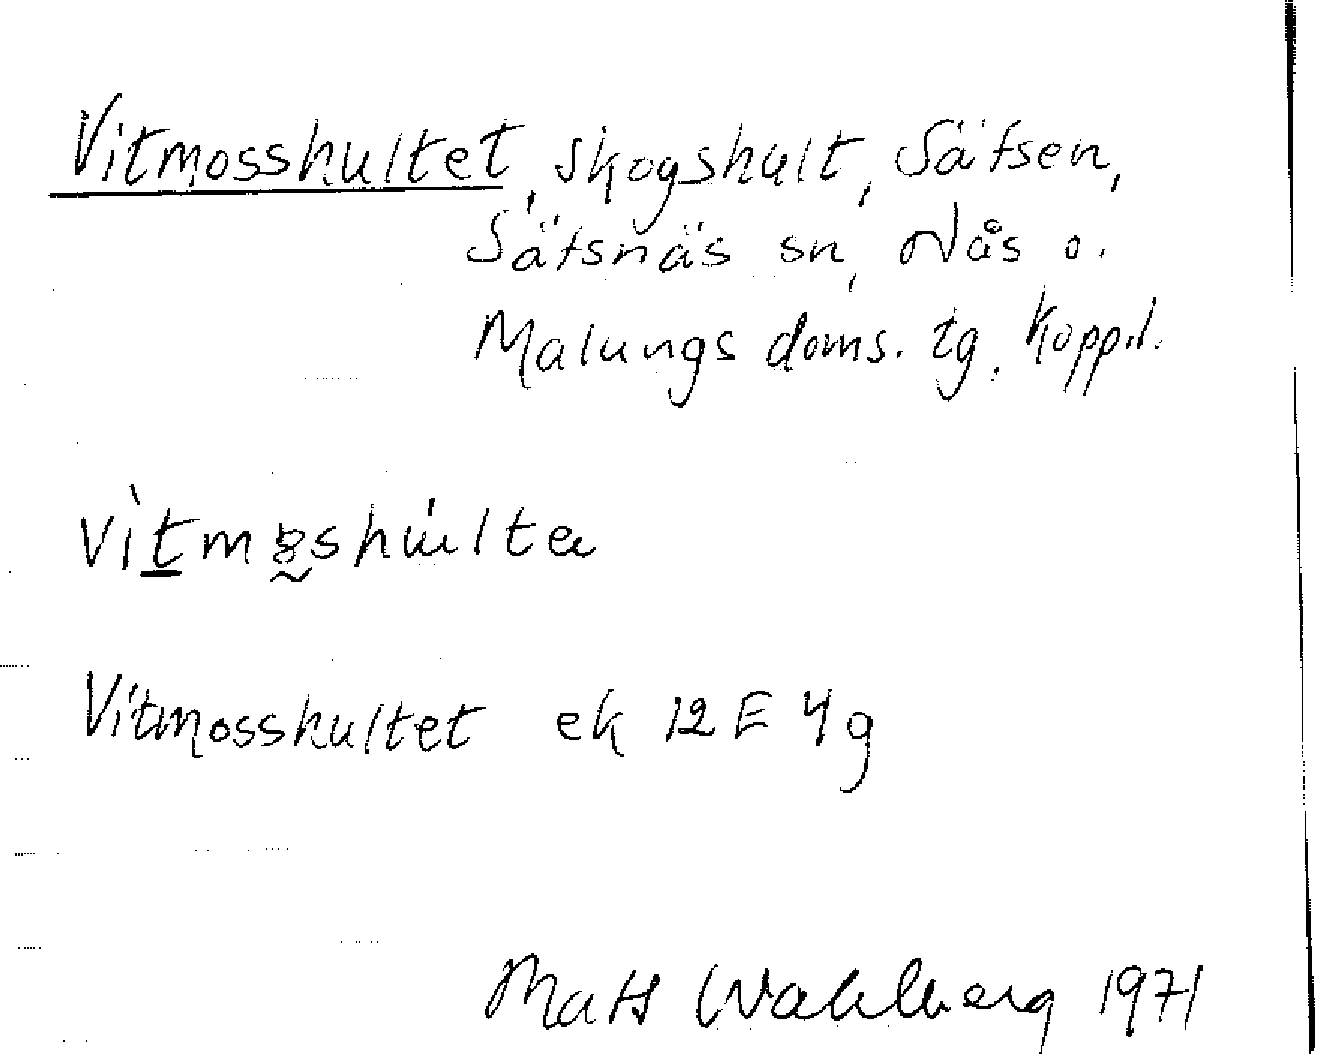 Vitmosshultet, skogshult, Säfsen,
Säfsnäs sn, Nås o.
Malungs doms. tg, Koppl.
Vitmosshultet ek 12E 4g
Mats Wahlberg 1971